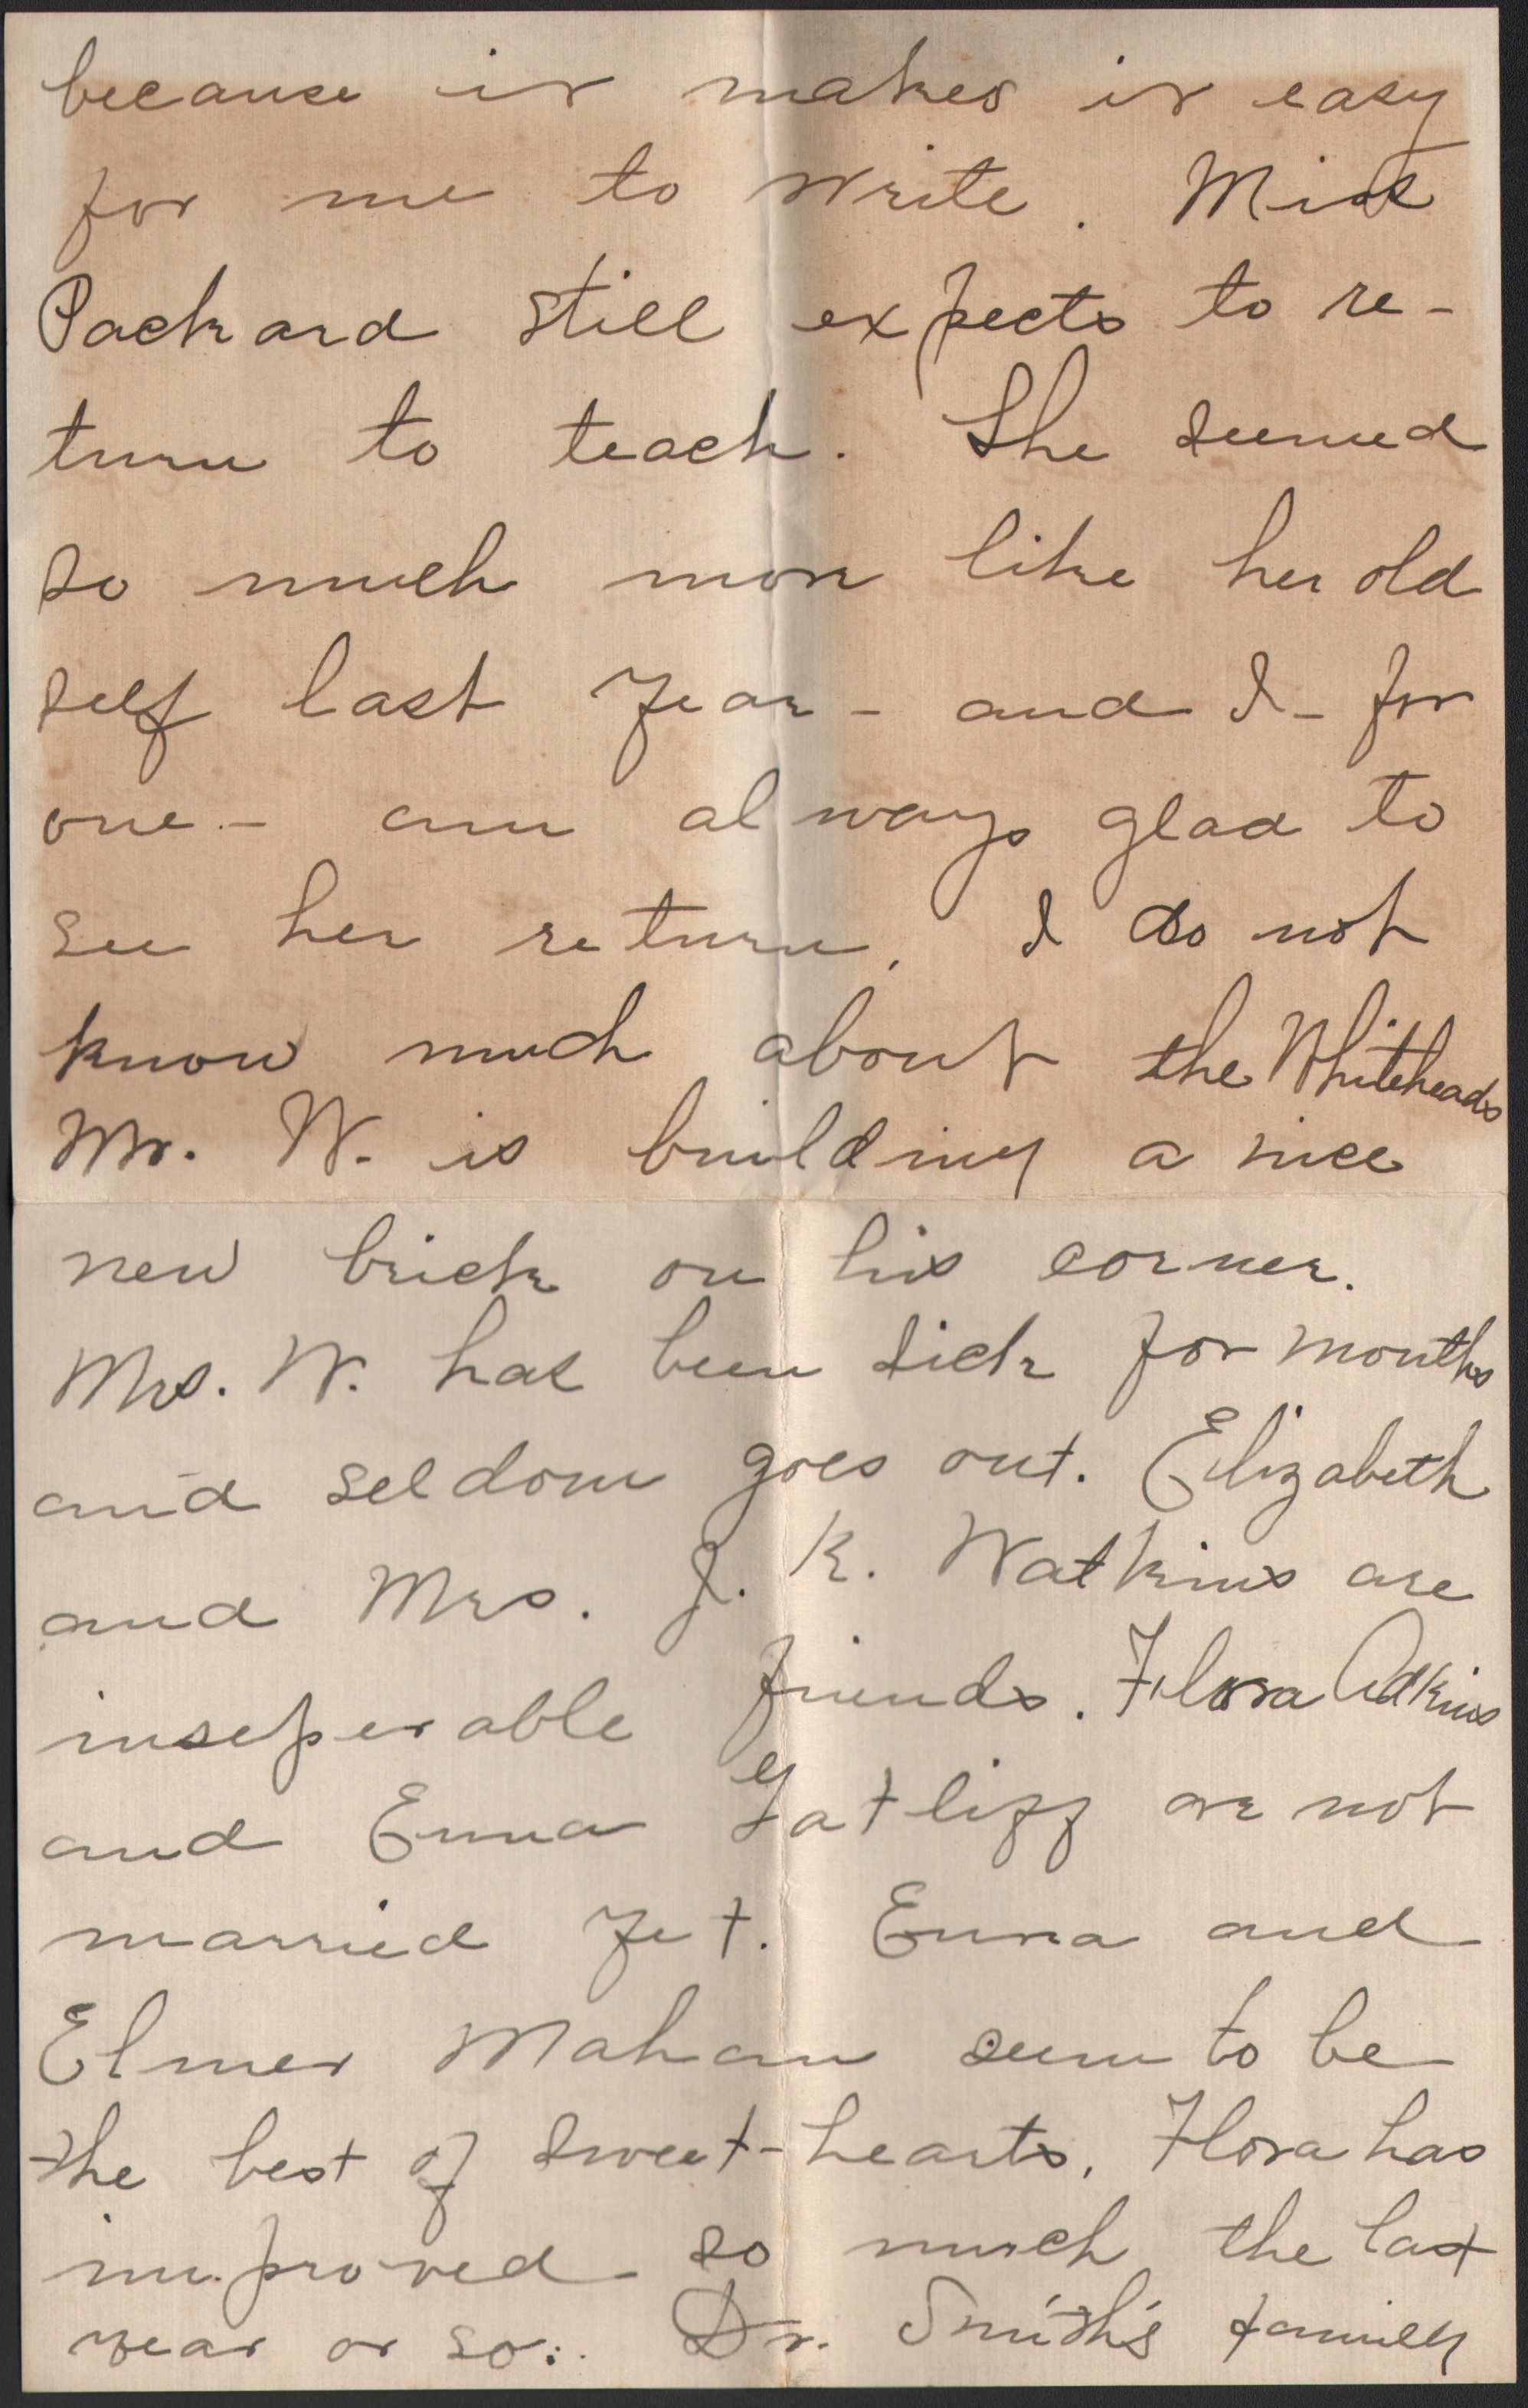 because it makes it easy
for me to write. Miss
Packard still expects to re-
turn to teach. She seemed
so much more like her old
self last year - and I - for
one - am always glad to
see her return. I do not
know much about the Whiteheads
Mr. W. is building a nice
new brick on his corner.
Mrs. W. has been sick for months
and seldom goes out. Elizabeth
and Mrs. J. K. Watkins are
inseperable friends. Flora Adkins
and Enna Gatliff are not
married yet. Enna and
Elmer Mahan seem to be
the best of sweet-hearts. Flora has
improved so much the last
year or so. Dr. Smith's family